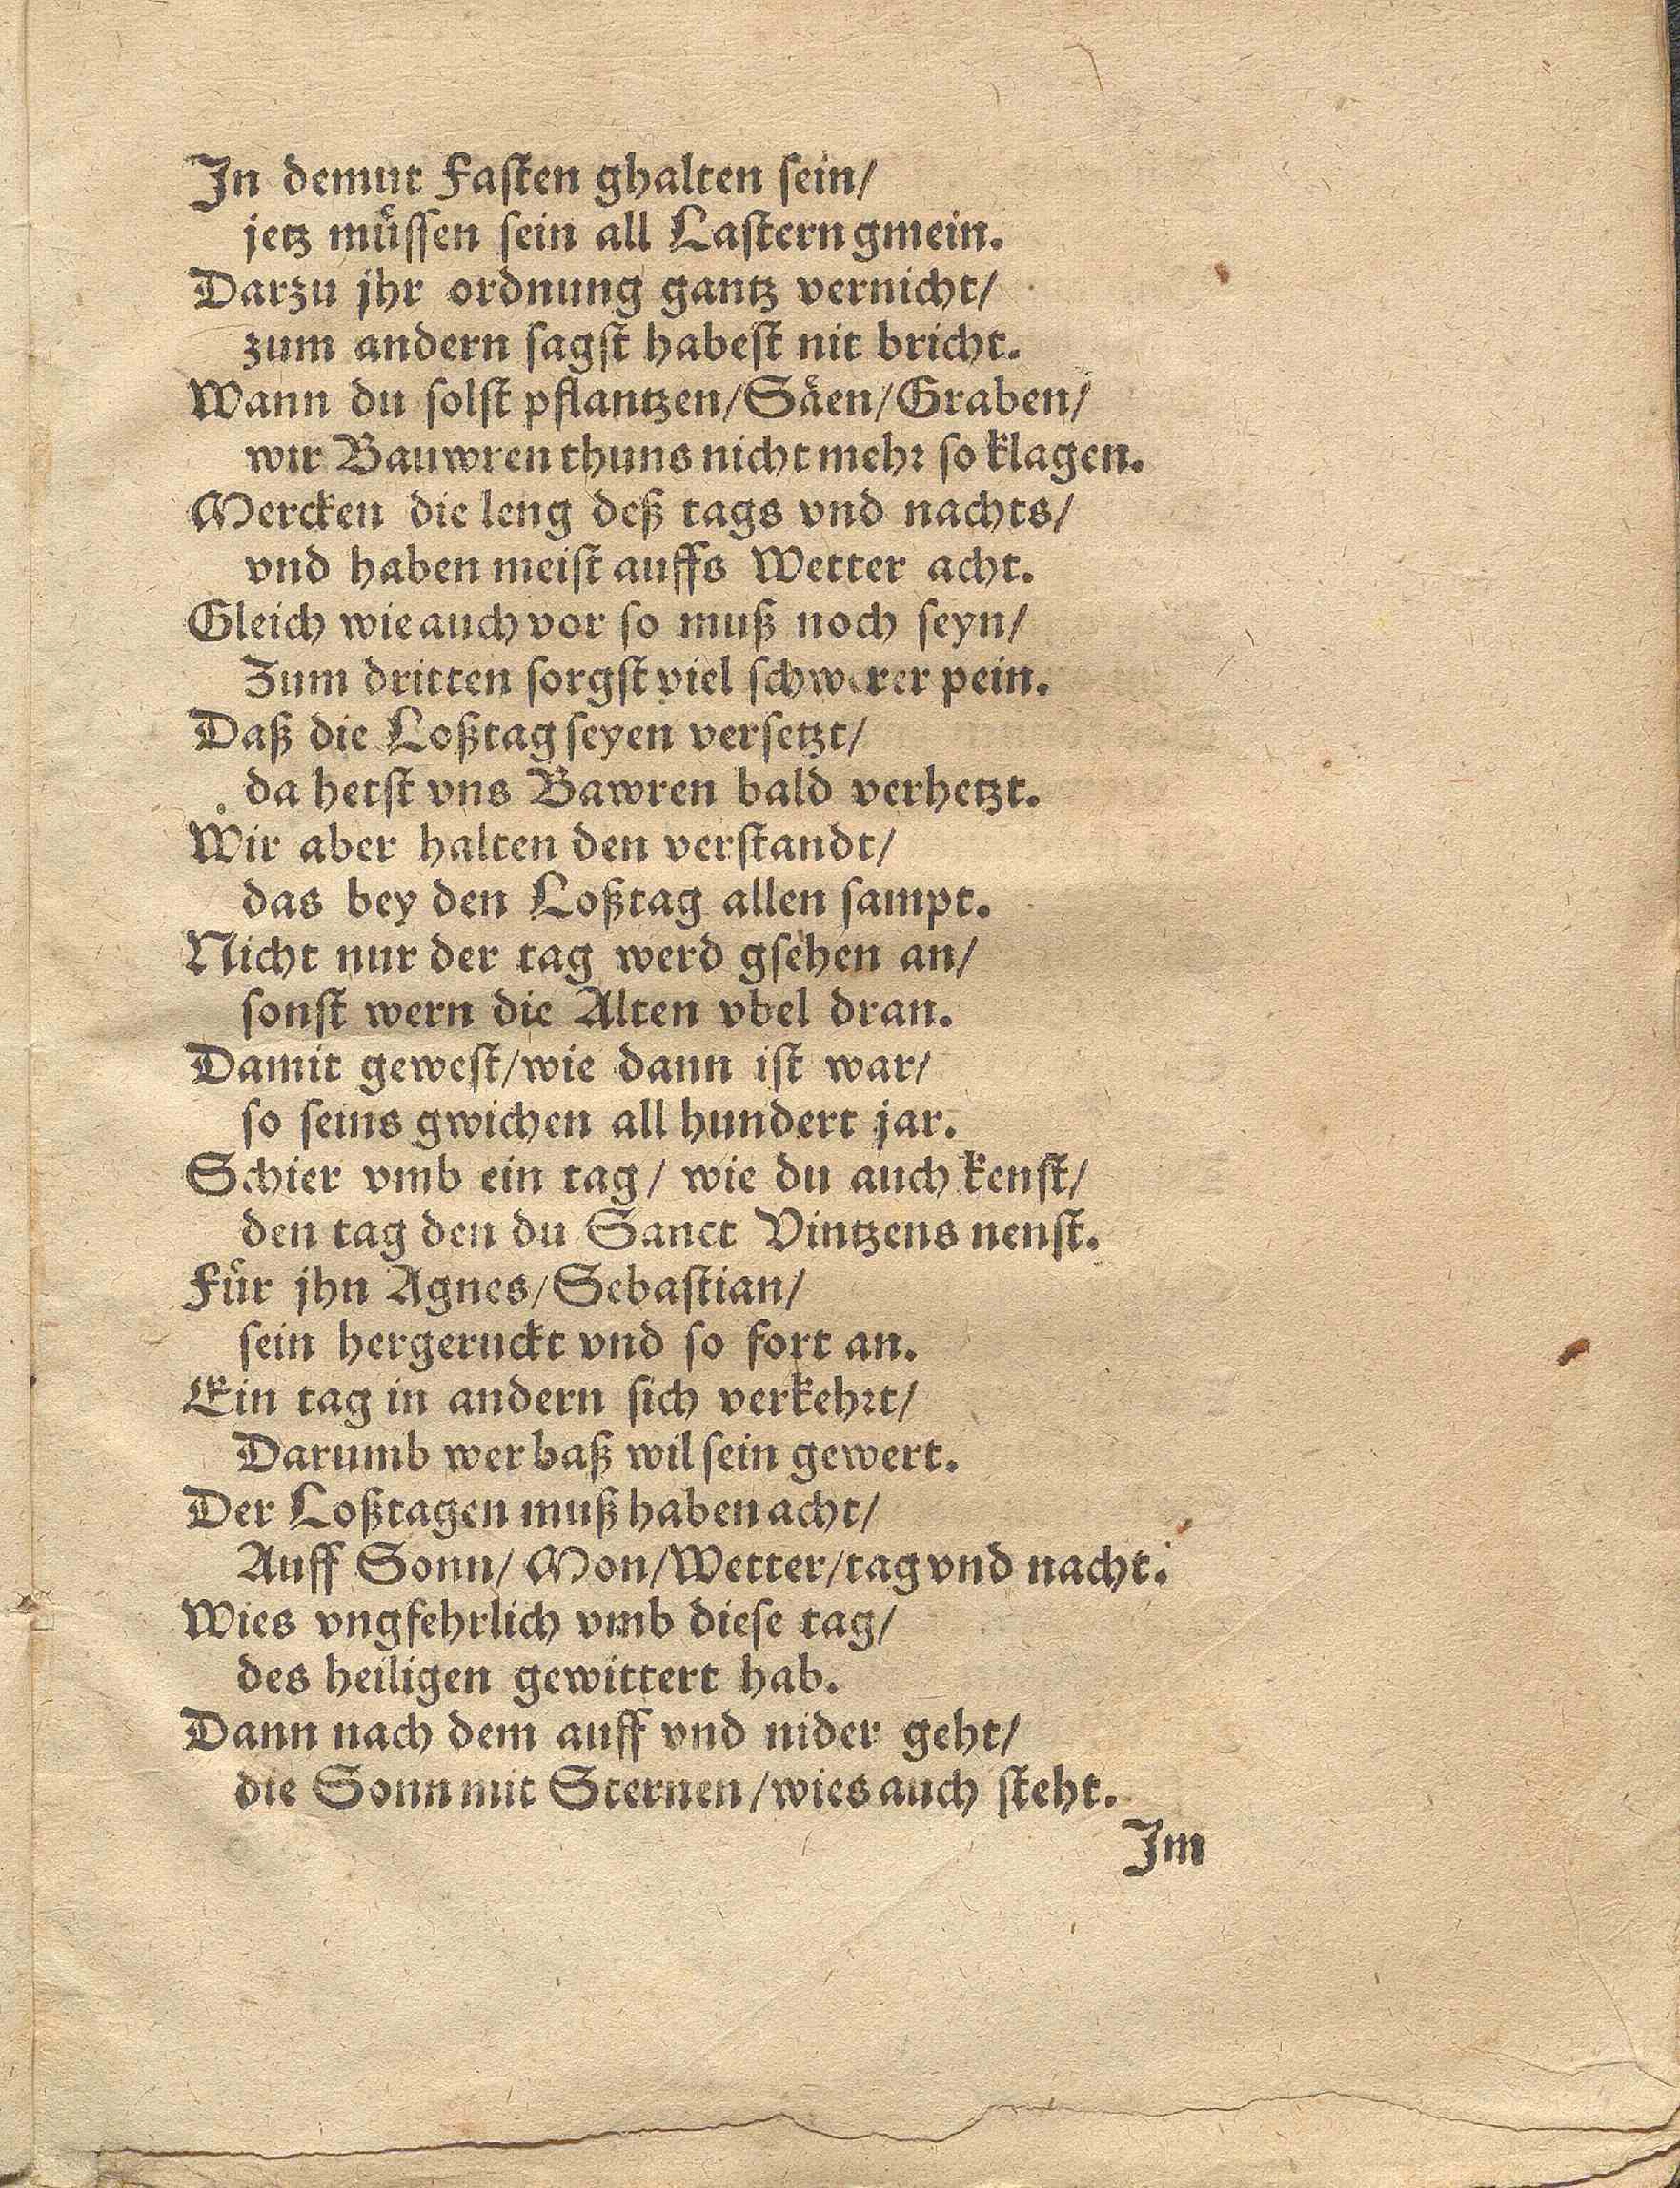 In demut Fasten ghalten sein/
jetz müssen sein all Lastern gmein.
Darzu jhr ordnung gantz vernicht/
zum andern sagst habest nit bricht.
Wann du solst pflantzen/Säen/Graben/
wir Bauwren thuns nicht mehr so klagen.
Mercken die leng deß tags vnd nachts/
vnd haben meist auffs Wetter acht.
Gleich wie auch vor so muß noch seyn/
Zum dritten sorgst viel schwerer pein.
Daß die Loßtag seyen versetzt/
da hetst vns Bawren bald verhetzt.
Wir aber halten den verstandt/
das bey den Loßtag allen sampt.
Nicht nur der tag werd gsehen an/
sonst wern die Alten vbel dran.
Damit gewest/wie dann ist war/
so seins gwichen all hundert jar.
Schier vmb ein tag/ wie du auch kenst/
den tag den du Sanct Vintzens nenst.
Für jhn Agnes/Sebastian/
sein hergeruckt vnd so fort an.
Ein tag in andern sich verkehrt/
Darumb wer baß wil sein gewert.
Der Loßtagen muß haben acht/
Auff Sonn/ Mon/Wetter/tag vnd nacht.
Wies vngfehrlich vmb diese tag/
des heiligen gewittert hab.
Dann nach dem auff vnd nider geht/
die Sonn mit Sternen/wies auch steht.
Im